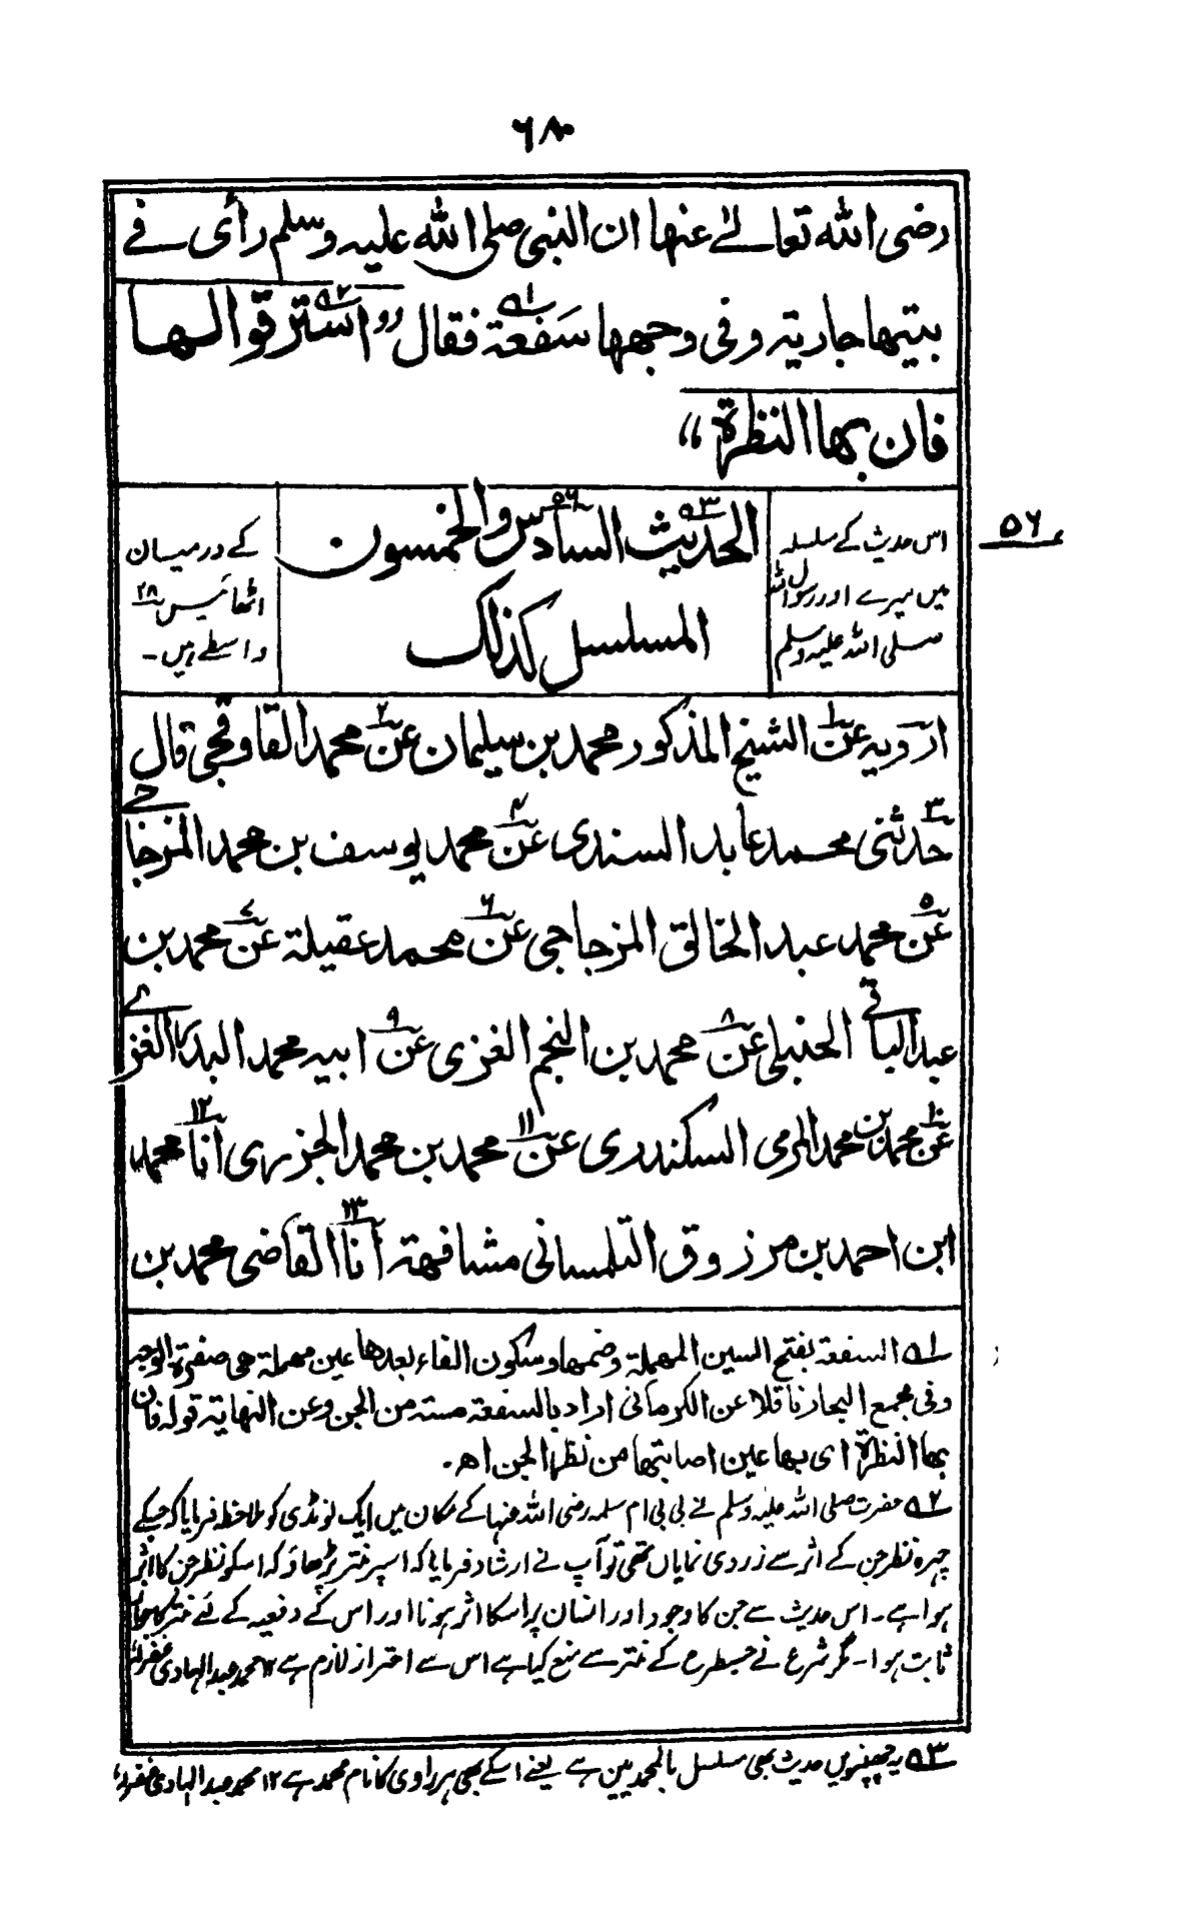 ٦٨٠
رضى الله تعالے عنها ان النبى صلى الله عليه وسلم رأى فے
بيتها جارية وفى وجهها سَفعة فقال "استرقوا لها
فان بها النظرة"
الحديث السادس والخمسون
المسلسل كذلك
اس حدیث کے سلسلہ
میں میرے اور رسول اللہ
صلی اللہ علیہ وسلم
کے درمیان
اٹھائیس ٢٨
واسطے ہیں۔
٥٦
ارويه عن الشيخ المذكور محمد بن سليمان عن محمد القاوقجى قال
حدثنى محمد عابد السندى عن محمد يوسف بن محمد المزجاجے
عن محمد عبد الخالق المزجاجى عن محمد عقيلة عن محمد بن
عبد الباقى الحنبلى عن محمد بن النجم الغزى عن ابيه محمد البدر الغزے
عن محمد بن محمد المرمى السكندرى عن محمد بن محمد الجزرى انا محمد
ابن احمد بن مرزوق التلمسانى مشافهة انا القاضى محمد بن
٥١ السفعة بفتح السين المهملة وضمها وسكون الفاء بعدها عين مهملة هى صفرة الوجه
وفى مجمع البحار ناقلا عن الكرمانى اراد بالسفعة مسته من الجن وعن النهاية قوله فان
بها النظرة اى بها عين اصابتها من نظر الجن اھ۔
٥٢ حضرت صلی اللہ علیہ وسلم نے بی بی ام سلمہ رضی اللہ عنہا کے مکان میں ایک لونڈی کو ملاحظہ فرمایا کہ جسکے
چہرہ نظر جن کے اثر سے زردی نمایاں تھی تو آپ نے ارشاد فرمایا کہ اسپر منتر پڑھاؤ کہ اسکو نظر جن کا اثر
ہوا ہے۔ اس حدیث سے جن کا وجود اور انسان پر اسکا اثر ہونا اور اس کے دفعیہ کے لئے منتر کا جواز
ثابت ہوا۔ مگر شرع نے جسطرح کے منتر سے منع کیا ہے اس سے احتراز لازم ہے ١٢ محمد عبد الہادی غفرلہ
٥٣ یہ چھپنویں حدیث بھی مسلسل بالمحمدیین ہے یعنے اسکے بھی ہر راوی کا نام محمد ہے ١٢ محمد عبد الہادی غفرلہ